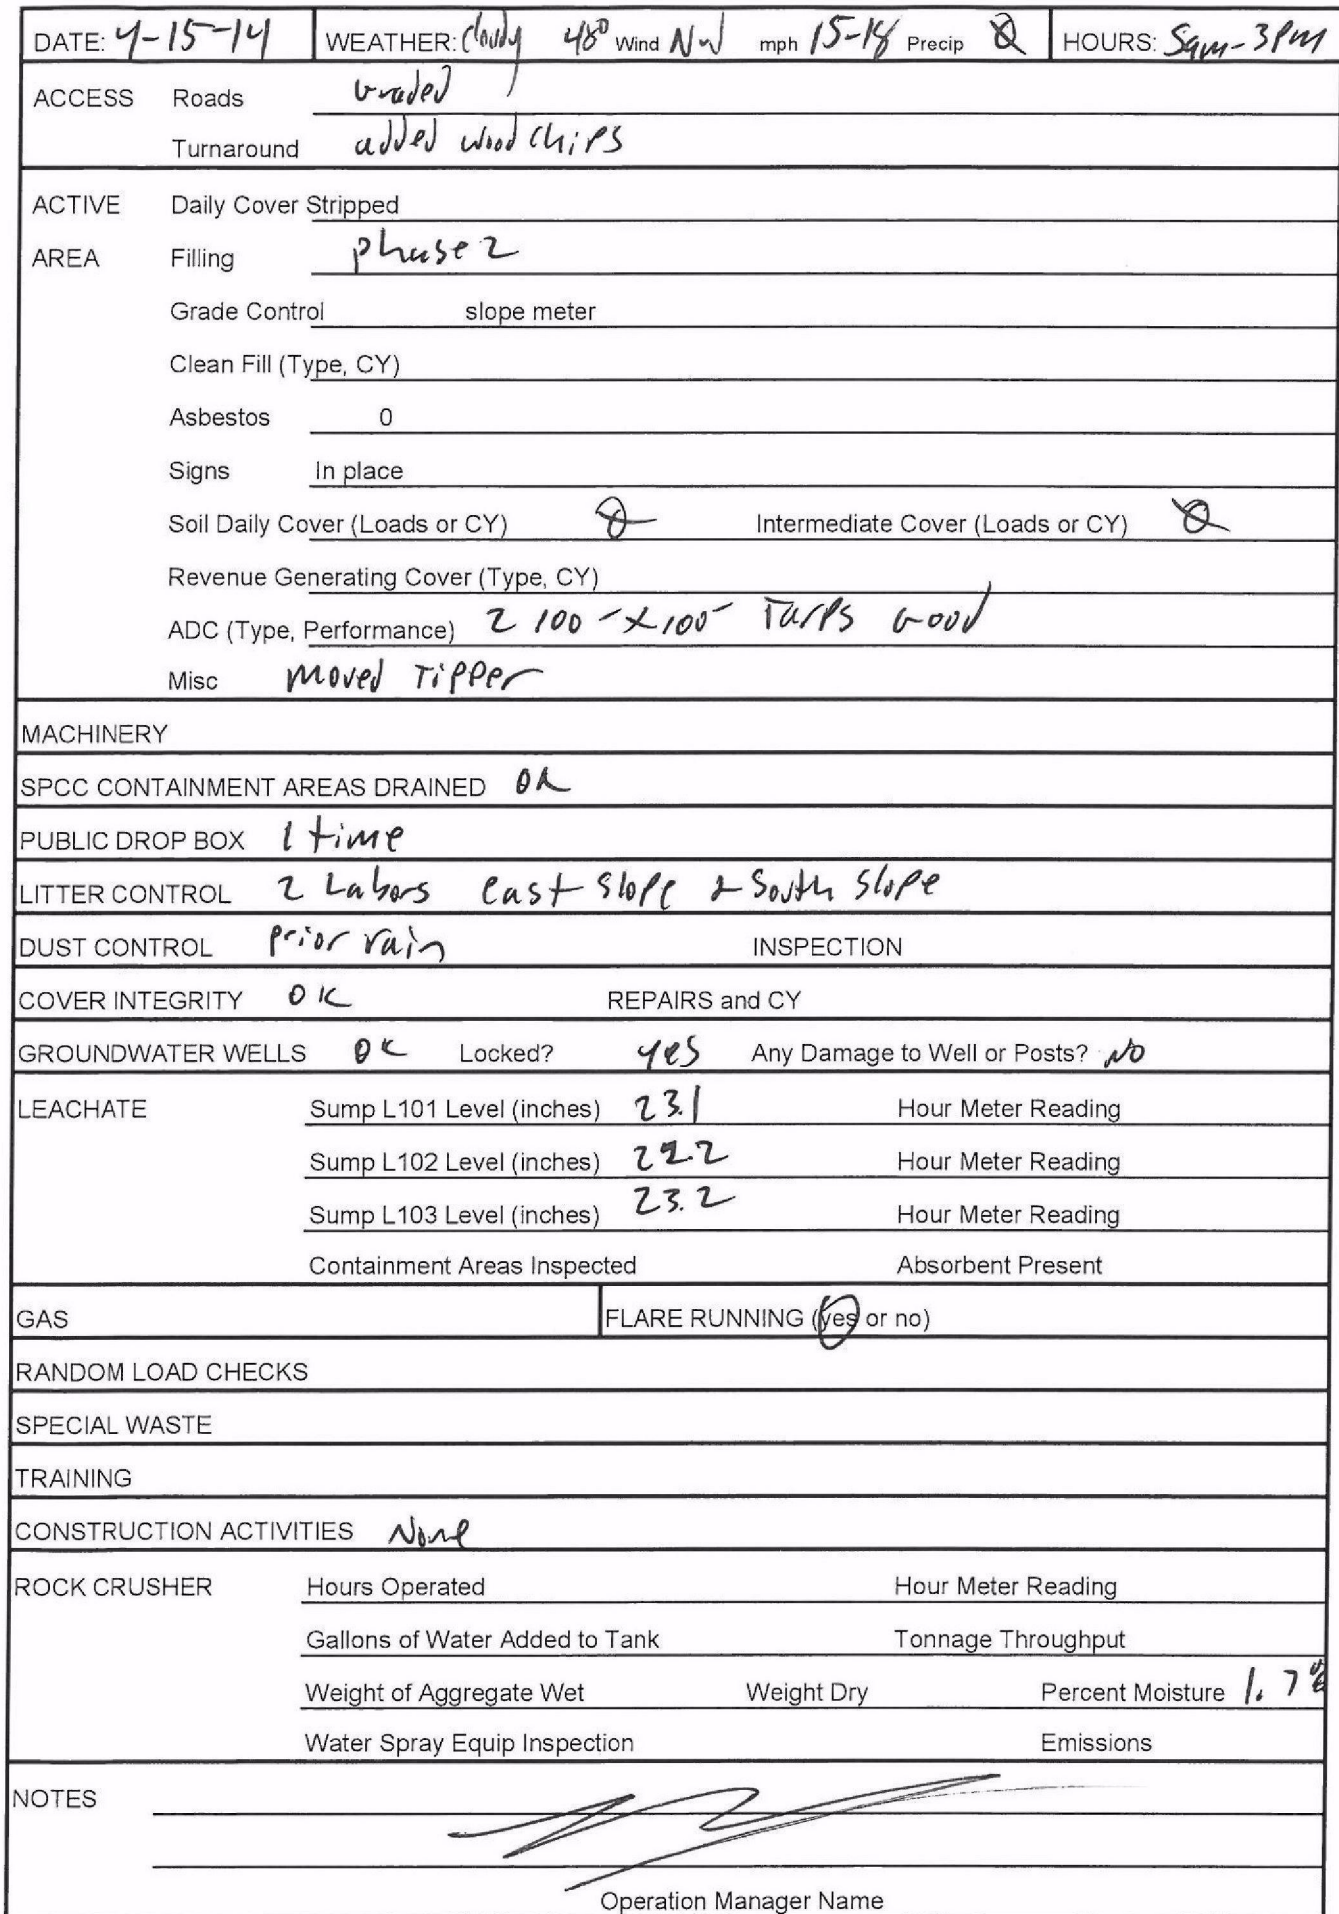 DATE: 4-15-14 WEATHER: Cloudy 48° Wind NW mph 15-18 Precip 0 HOURS: 5am-3PM
ACCESS Roads Graded
Turnaround added wood chips
ACTIVE Daily Cover Stripped
AREA Filling phase 2
Grade Control slope meter
Clean Fill (Type, CY)
Asbestos 0
Signs In place
Soil Daily Cover (Loads or CY) 0 Intermediate Cover (Loads or CY) 0
Revenue Generating Cover (Type, CY)
ADC (Type, Performance) 2 100-x100- Tarps Good
Misc moved Tipper
MACHINERY
SPCC CONTAINMENT AREAS DRAINED OK
PUBLIC DROP BOX 1 time
LITTER CONTROL 2 Labors east slope & South slope
DUST CONTROL prior rain INSPECTION
COVER INTEGRITY OK REPAIRS and CY
GROUNDWATER WELLS OK Locked? yes Any Damage to Well or Posts? NO
LEACHATE Sump L101 Level (inches) 23.1 Hour Meter Reading
Sump L102 Level (inches) Hour Meter Reading
Sump L103 Level (inches) 23.2 Hour Meter Reading
Containment Areas Inspected Absorbent Present
GAS FLARE RUNNING (yes or no)
RANDOM LOAD CHECKS
SPECIAL WASTE
TRAINING
CONSTRUCTION ACTIVITIES None
ROCK CRUSHER Hours Operated Hour Meter Reading
Gallons of Water Added to Tank Tonnage Throughput
Weight of Aggregate Wet Weight Dry Percent Moisture 1.7%
Water Spray Equip Inspection Emissions
NOTES
Operation Manager Name